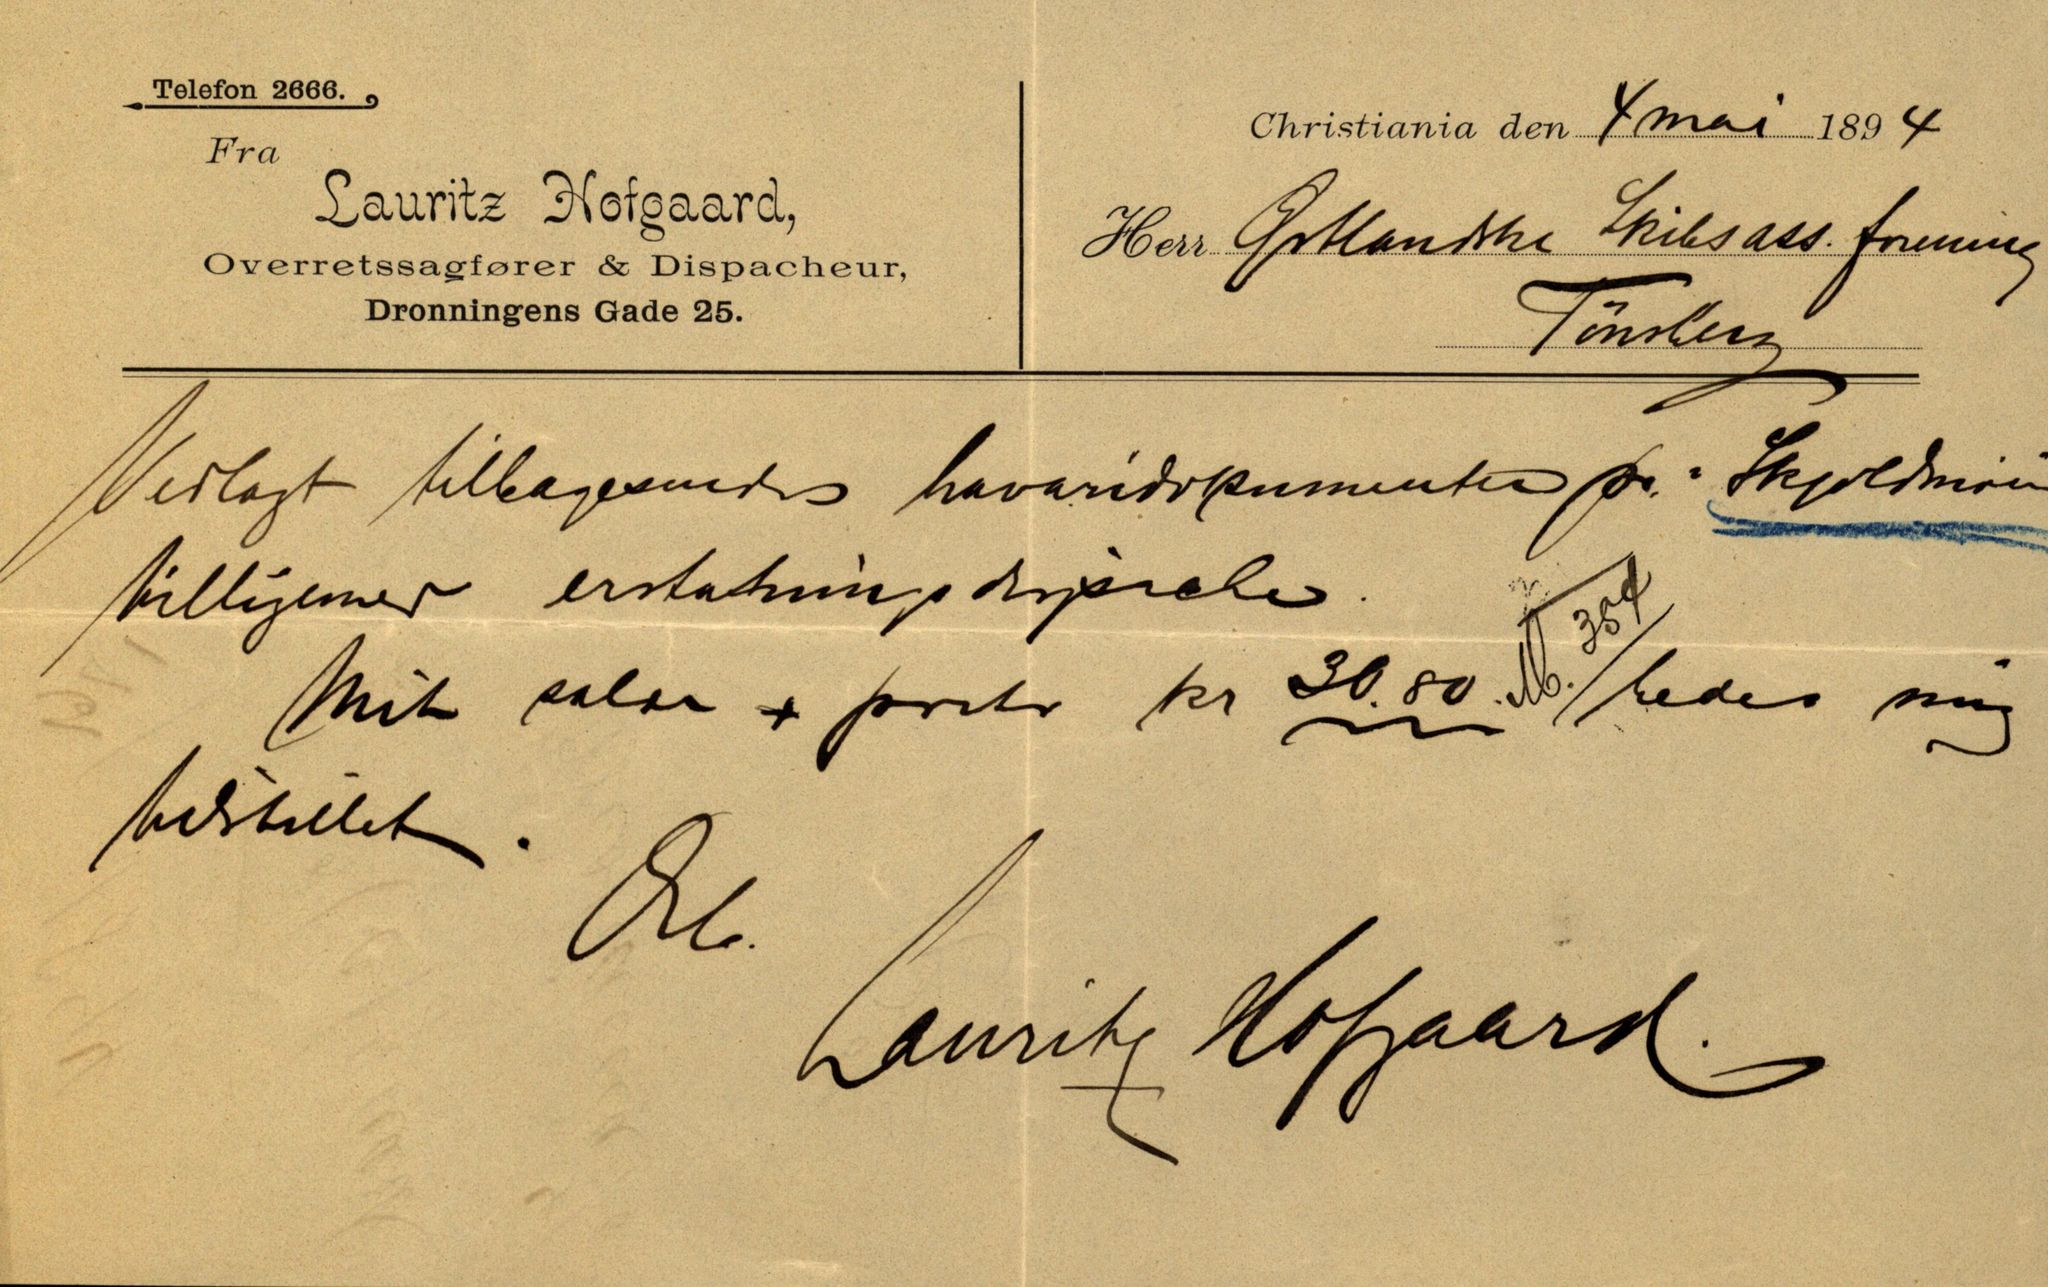 Telefon 2666.
Fra
Lauritz Hofgaard,
Overretssagfører & Dispacheur,
Dronningens Gade 25.
Christiania den 4 mai 1894
Herr Østlandske Skibsass. forening
Tönsberg
Vedlagt tilbagesendes havaridokumenter pr. "Skjoldmöen
tilligemed erstatningsdispache.
Mit salær + porto kr 30.80. bedes mig
tilstillet.
Erb.
Lauritz Hofgaard.
354